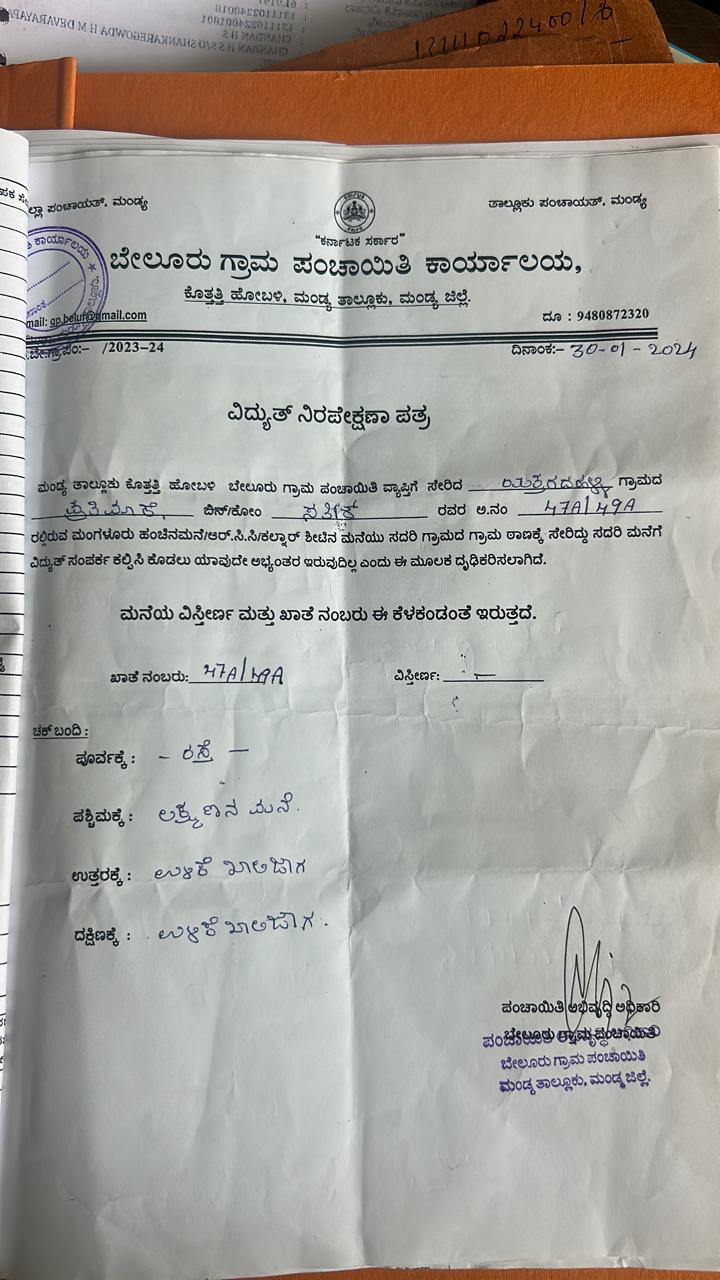 1311102240016
ಲ್ಲಾ ಪಂಚಾಯತ್, ಮಂಡ್ಯ
ತಾಲ್ಲೂಕು ಪಂಚಾಯತ್, ಮಂಡ್ಯ
"ಕರ್ನಾಟಕ ಸರ್ಕಾರ"
ಬೇಲೂರು ಗ್ರಾಮ ಪಂಚಾಯಿತಿ ಕಾರ್ಯಾಲಯ,
ಕೊತ್ತತ್ತಿ ಹೋಬಳಿ, ಮಂಡ್ಯ ತಾಲ್ಲೂಕು, ಮಂಡ್ಯ ಜಿಲ್ಲೆ.
mail: gp.belur@gmail.com
ದೂ : 9480872320
ಬೇ.ಗ್ರಾ.ಪಂ:- /2023-24
ದಿನಾಂಕ:- 30-01-2024
ವಿದ್ಯುತ್ ನಿರಪೇಕ್ಷಣಾ ಪತ್ರ
ಮಂಡ್ಯ ತಾಲ್ಲೂಕು ಕೊತ್ತತ್ತಿ ಹೋಬಳಿ ಬೇಲೂರು ಗ್ರಾಮ ಪಂಚಾಯಿತಿ ವ್ಯಾಪ್ತಿಗೆ ಸೇರಿದ ಗ್ರಾಮದ
ಬಿನ್/ಕೋಂ ರವರ ಅ.ನಂ 47A/49A
ರಲ್ಲಿರುವ ಮಂಗಳೂರು ಹಂಚಿನಮನೆ/ಆರ್.ಸಿ.ಸಿ/ಕಲ್ನಾರ್ ಶೀಟಿನ ಮನೆಯು ಸದರಿ ಗ್ರಾಮದ ಗ್ರಾಮ ಠಾಣಕ್ಕೆ ಸೇರಿದ್ದು ಸದರಿ ಮನೆಗೆ
ವಿದ್ಯುತ್ ಸಂಪರ್ಕ ಕಲ್ಪಿಸಿ ಕೊಡಲು ಯಾವುದೇ ಅಭ್ಯಂತರ ಇರುವುದಿಲ್ಲ ಎಂದು ಈ ಮೂಲಕ ದೃಢಿಕರಿಸಲಾಗಿದೆ.
ಮನೆಯ ವಿಸ್ತೀರ್ಣ ಮತ್ತು ಖಾತೆ ನಂಬರು ಈ ಕೆಳಕಂಡಂತೆ ಇರುತ್ತದೆ.
ಖಾತೆ ನಂಬರು: 47A/49A
ವಿಸ್ತೀರ್ಣ: -
ಚಕ್ ಬಂದಿ :
ಪೂರ್ವಕ್ಕೆ : - ರಸ್ತೆ -
ಪಶ್ಚಿಮಕ್ಕೆ : ಲಕ್ಷ್ಮಣನ ಮನೆ.
ಉತ್ತರಕ್ಕೆ : ಉಳಿಕೆ ಖಾಲಿಜಾಗ
ದಕ್ಷಿಣಕ್ಕೆ : ಉಳಿಕೆ ಖಾಲಿಜಾಗ.
ಪಂಚಾಯಿತಿ ಅಭಿವೃದ್ಧಿ ಅಧಿಕಾರಿ
ಬೇಲೂರು ಗ್ರಾಮ ಪಂಚಾಯಿತಿ
ಬೇಲೂರು ಗ್ರಾಮ ಪಂಚಾಯಿತಿ
ಮಂಡ್ಯ ತಾಲ್ಲೂಕು, ಮಂಡ್ಯ ಜಿಲ್ಲೆ.